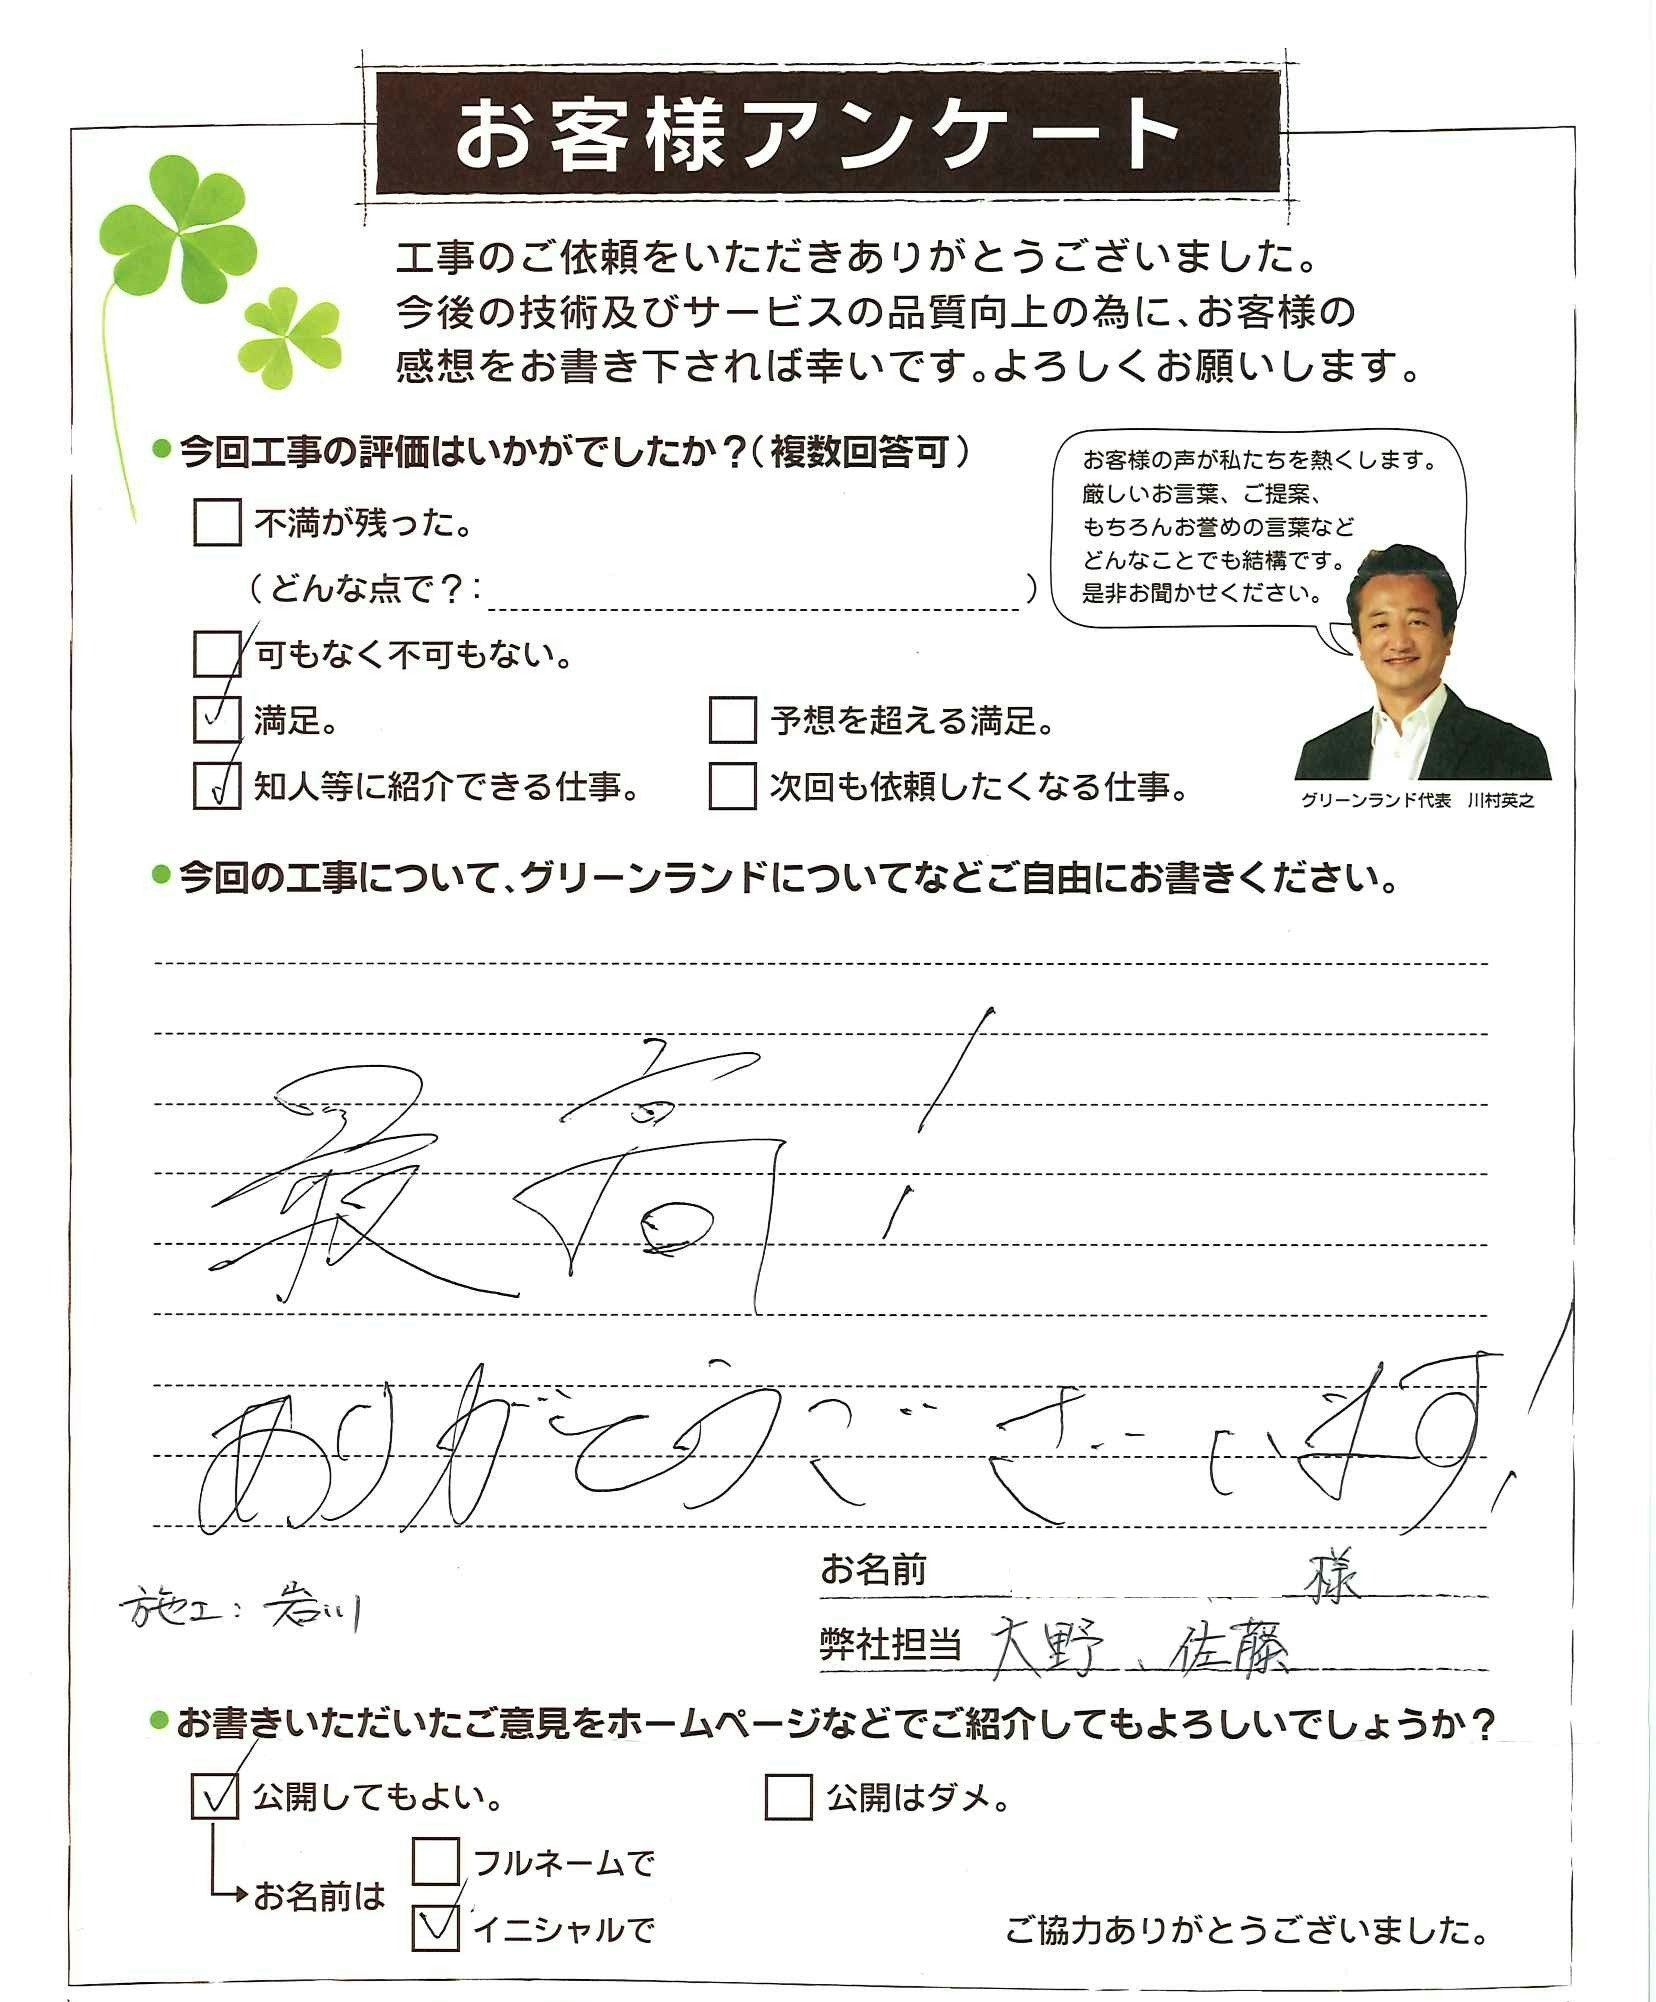 お客様アンケート
工事のご依頼をいただきありがとうございました。
今後の技術及びサービスの品質向上の為に、お客様の
感想をお書き下されば幸いです。よろしくお願いします。
●今回工事の評価はいかがでしたか？（複数回答可）
不満が残った。
（どんな点で？：　　　　）
可もなく不可もない。
満足。
予想を超える満足。
知人等に紹介できる仕事。
次回も依頼したくなる仕事。
お客様の声が私たちを熱くします。
厳しいお言葉、ご提案、
もちろんお誉めの言葉など
どんなことでも結構です。
是非お聞かせください。
グリーンランド代表　川村英之
●今回の工事について、グリーンランドについてなどご自由にお書きください。
最高！
ありがとうございます！
施工：岩川
お名前　　　　様
弊社担当　大野、佐藤
●お書きいただいたご意見をホームページなどでご紹介してもよろしいでしょうか？
公開してもよい。
公開はダメ。
お名前は
フルネームで
イニシャルで
ご協力ありがとうございました。